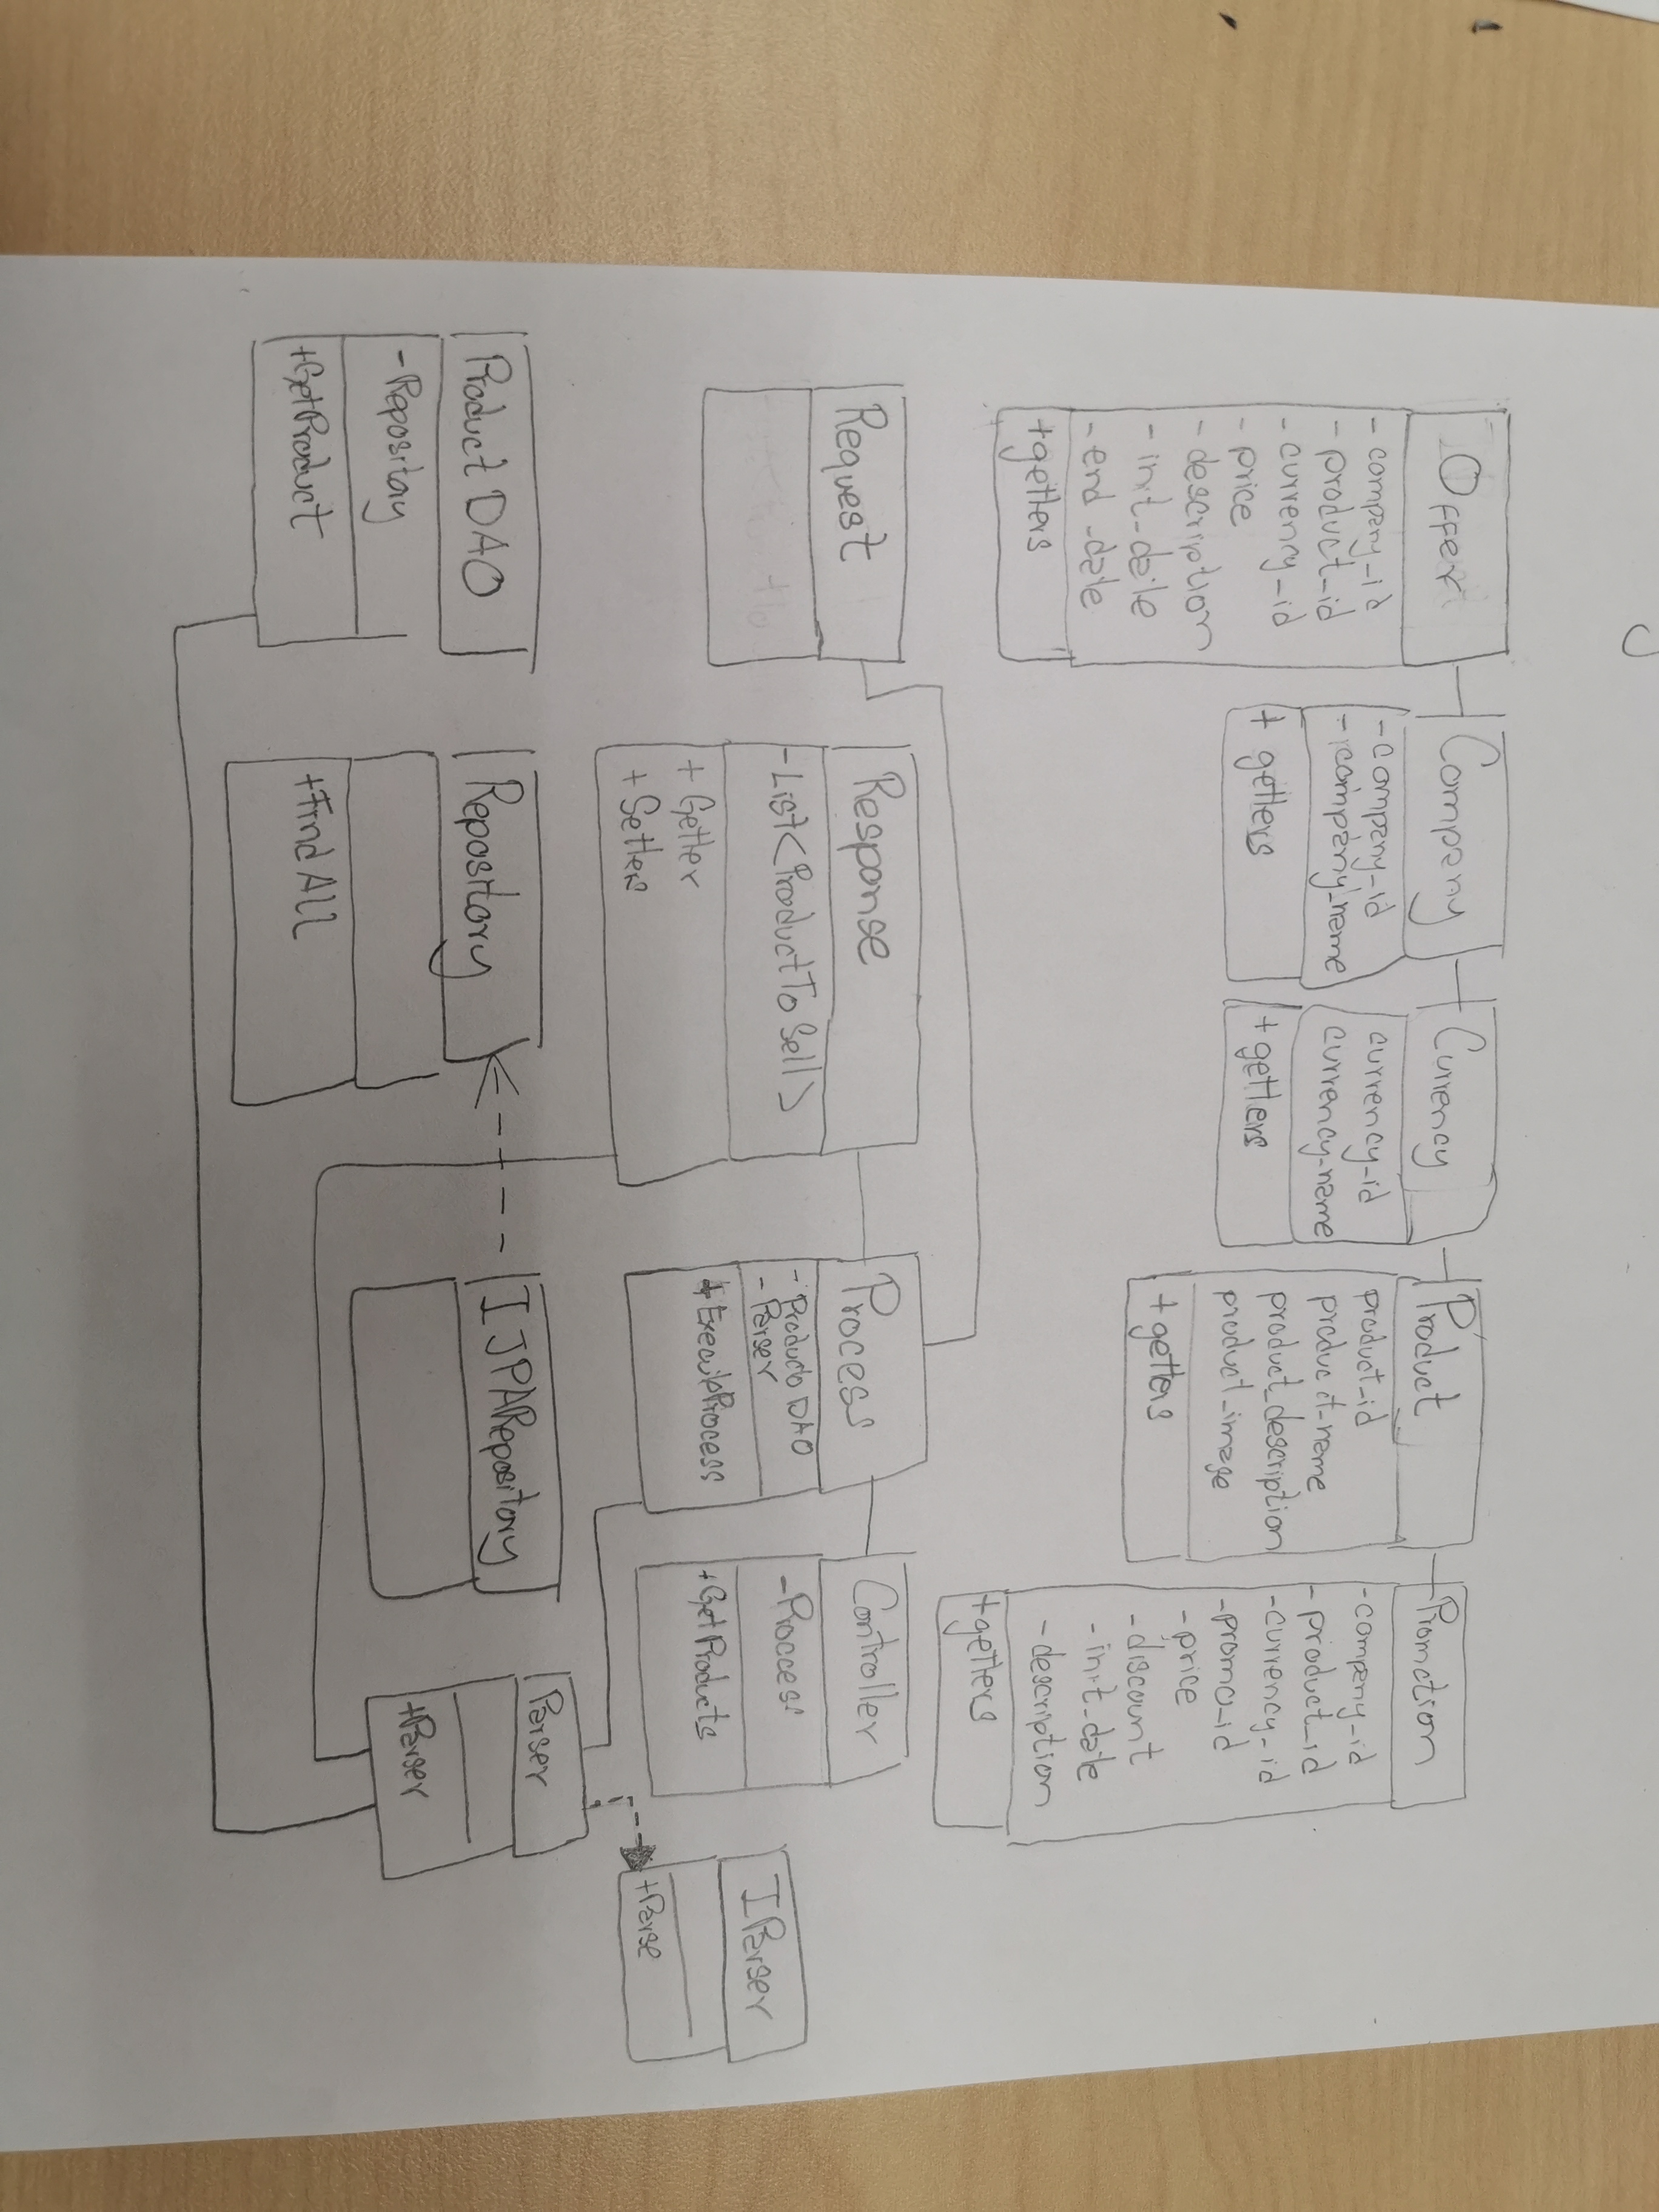 Offer
- company_id
- product_id
- currency_id
- price
- description
- init_date
- end_date
+getters
Company
- company_id
- company_name
+ getters
Currency
currency_id
currency_name
+ getters
Product
product_id
product_name
product_description
product_image
+getters
Promotion
-company_id
-product_id
-currency_id
-promo_id
-price
-discount
-init_date
-description
+getters
Request
Response
-List<ProductToSell>
+ Getter
+ Setters
Process
- Producto DAO
- Parser
+ExecuteProcess
Controller
-Procces
+GetProducts
IParser
+Parse
Product DAO
-Repository
+GetProduct
Repository
+Find All
IJPARepository
Parser
+Parser